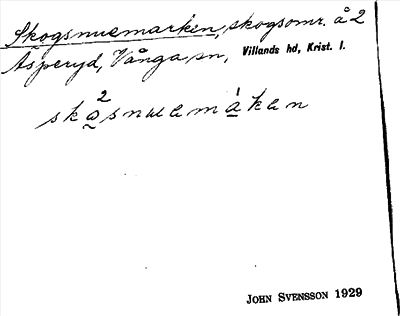 Skogsnuemarken, skogsomr. å 2
Äsperyd, Vånga sn, Villands hd, Krist. l.
2
skosnuamákan
JOHN SVENSSON 1929